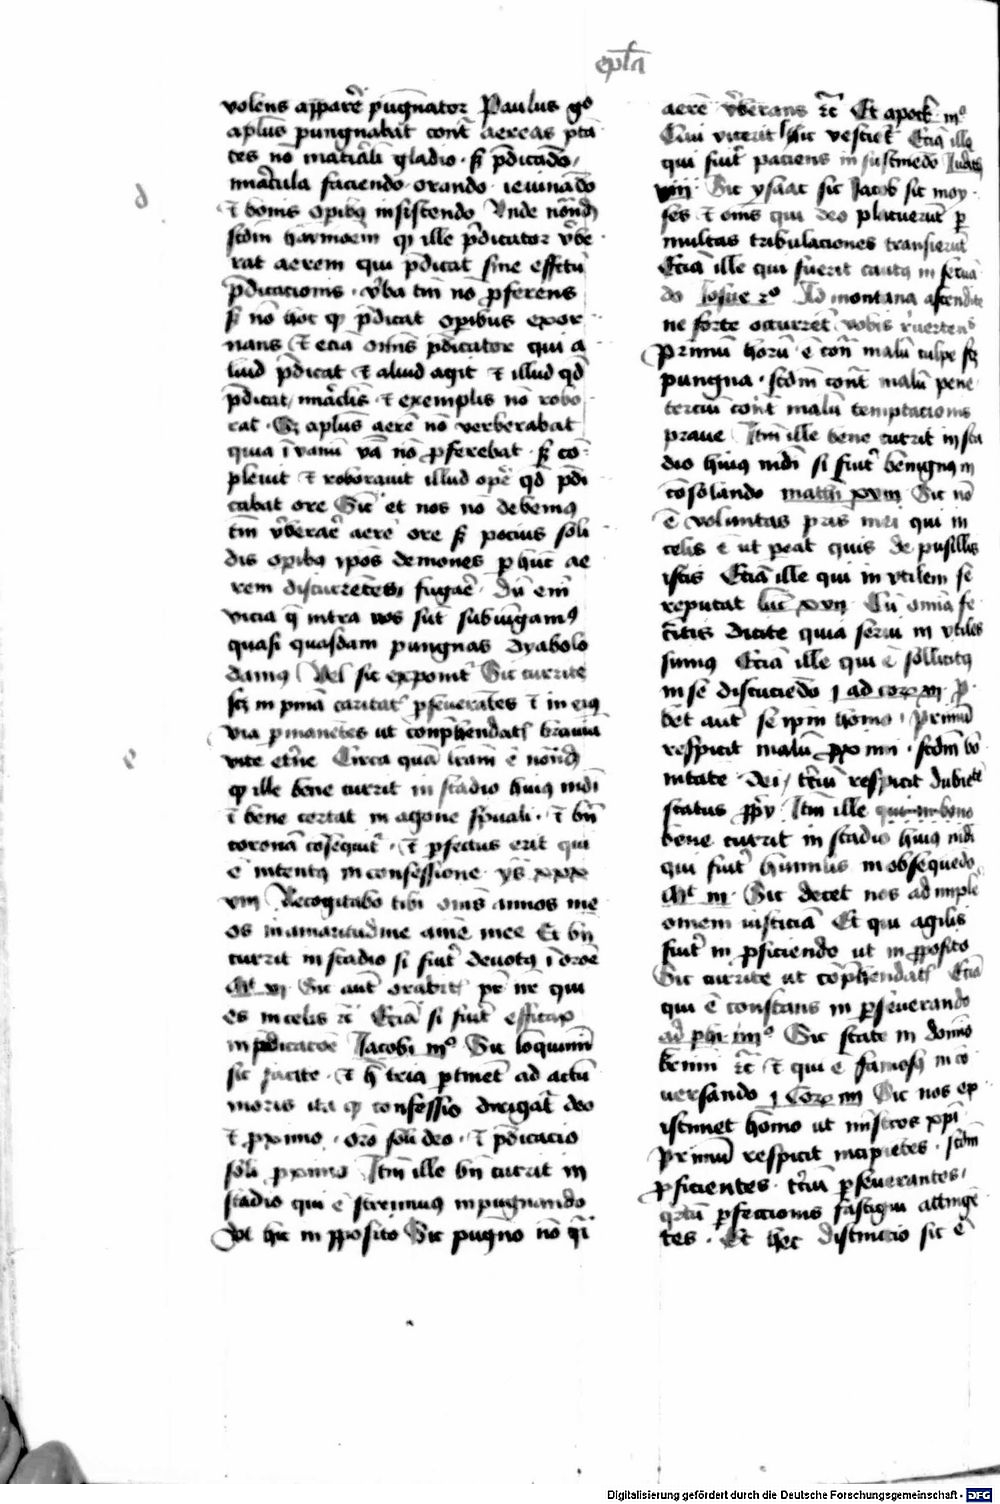 epl̄a
volens apparē pugnator Paulus gͦ
aplus pungnabat cont̄ aereas ptā
tes nō mat̄iali gladio · ſꝫ p̄dicādo
mirācula faciendo orando ieiunādo
⁊ bonis opibꝫ inſiſtendo Unde nōndū
ſcd̄m ꝙ ille p̄dicator v̄be
rat aerem qui p̄dicat ſine effctu
p̄dicacionis · v̄ba tm̄ nō ꝓferens
ſꝫ nō hoc ꝙ p̄dicat opibus exor
nans ⁊ eciā om̄is p̄dicator qui a
liud p̄dicat ⁊ aliud agit ⁊ illud qd̄
p̄dicat miraclis ⁊ exemplis nō robo
rat · Sꝫ aplus aerē nō verberabat
quia ī vanū v̄a nō ꝓferebat ſꝫ cō
pleuit ⁊ roborauit illud ope qd̄ p̄di
cabat ore Sic et nos nō debemꝰ
tm̄ v̄berare aerē ore ſꝫ pocius ſoli
dis opibꝫ ip̄os demones ꝑ hūc ae
rem diſcurrētes fugare Dū em̄
vicia q̄ intra nos ſūt ſubiugamꝰ
quaſi quaſdam pungnas dyabolo
damꝰ Vel ſic exponit̄ Sic currite
ſcꝫ in p̄ma caritate ꝑſeuerātes ⁊ in eiꝰ
via ꝑmanētes ut conp̄hendatꝭ brauiū
vite et̄ne Circa quā lr̄am ē nōnd
ꝙ ille bene currit in ſtadio huiꝰ mūdi
⁊ bene certat in agone ſp̄uali · ⁊ bn̄
coronā coſequit̄ · ⁊ ꝑfectus erit qui
ē intentꝰ in confeſſione yſ xxx
viii Recogitabo tibi om̄s annos me
os in amaritudine aīe mee Et bn̄
currit in ſtadio ſi fiut̄ deuotꝰ ī orōe
Mt̄ vi Sic aut̄ orabitꝭ pr̄ nr̄ qui
es in celis ꝛc̄ Eciā ſi fiut̄ efficax
in p̄dicacōe Jacobi iiͦ Sic loquimī
ſic facite · ⁊ h̄ tria ꝑtinēt ad actū
moris ita ꝙ confeſſio dirigat̄ deo
⁊ ꝓximo · orō ſoli deo · ⁊ p̄dicacio
ſoli ꝓximo Itm̄ ille bn̄ currit in
ſtadio qui ē ſtrenuus in pugnando
vl̄ hic in ꝓpoſito Sic pugno nō q̄i
aerē v̄berans ꝛc̄ Et apock̄ iiiͦ
Qui vicerit ſic veſtiet̄ Eciā ille
qui fiut̄ paciens in ſuſtinēdo Judith
viii · Sic yſaac ſic Jacob ſic moy
ſes ⁊ om̄s qui deo placuerūt ꝑ
multas tribulaciones tranſierūt
Eciā ille qui fuerit cautꝰ in
do Joſue 2ͦ Ad montana aſcendite
ne forte occurrēt vobis r̄uertens
Primū horū ē con̄ malū culpe ſcꝫ
pungna · ſcd̄m cont̄ malū pene
terciū cont̄ malū temptacionis
praue Itm̄ ille bene currit in ſta
dio huiꝰ mūdi ſi fiut̄ benignꝰ in
cōſolando math xviii Sic nō
ē voluntas pr̄is mei qui in
celis ē ut peat quis de puſillis
iſtis Eciā ille qui inutilem ſe
reputat luc xvii Cū omīa fe
ceritis dicite quia ſerui inutiles
ſumꝰ Eciā ille qui ē ſollicitꝰ
in ſe diſcuciēdo j ad cor xi P
bet aut̄ ſe ip̄m homo Primū
reſpicit malū ꝓximi · ſcd̄m bo
nitatē dei t̄ciū reſpicit dubietē
ſtatus ꝓprij Itm̄ ille qui in bono
bene currit in ſtadio huiꝰ mūdi
qui fiut̄ humilis in obſequēdo
Mt̄ iii · Sic decet nos adimple
omem iuſticiā Et qui agilis
fiut̄ in ꝓficiendo ut in ꝓpoſito
Sic currite ut cōp̄hendatꝭ Eciā
qui ē conſtans in ꝑſeuerando
ad phi iiiiͦ Sic ſtate in domino
kr̄mi ꝛc̄ ⁊ qui ē famoſꝰ in cō
uerſando j Cor iiii Sic nos ex
iſtimet homo ut miſtros xp̄i
Primū reſpicit incipiētes · ſcd̄m
ꝓficientes · t̄ciū ꝑſeuerantes
qr̄tū ꝑfectionis faſtigiū attingē
tes · Et hec diſtinctio ſic ē
d
e
Digitalisierung gefördert durch die Deutsche Forschungsgemeinschaft - DFG